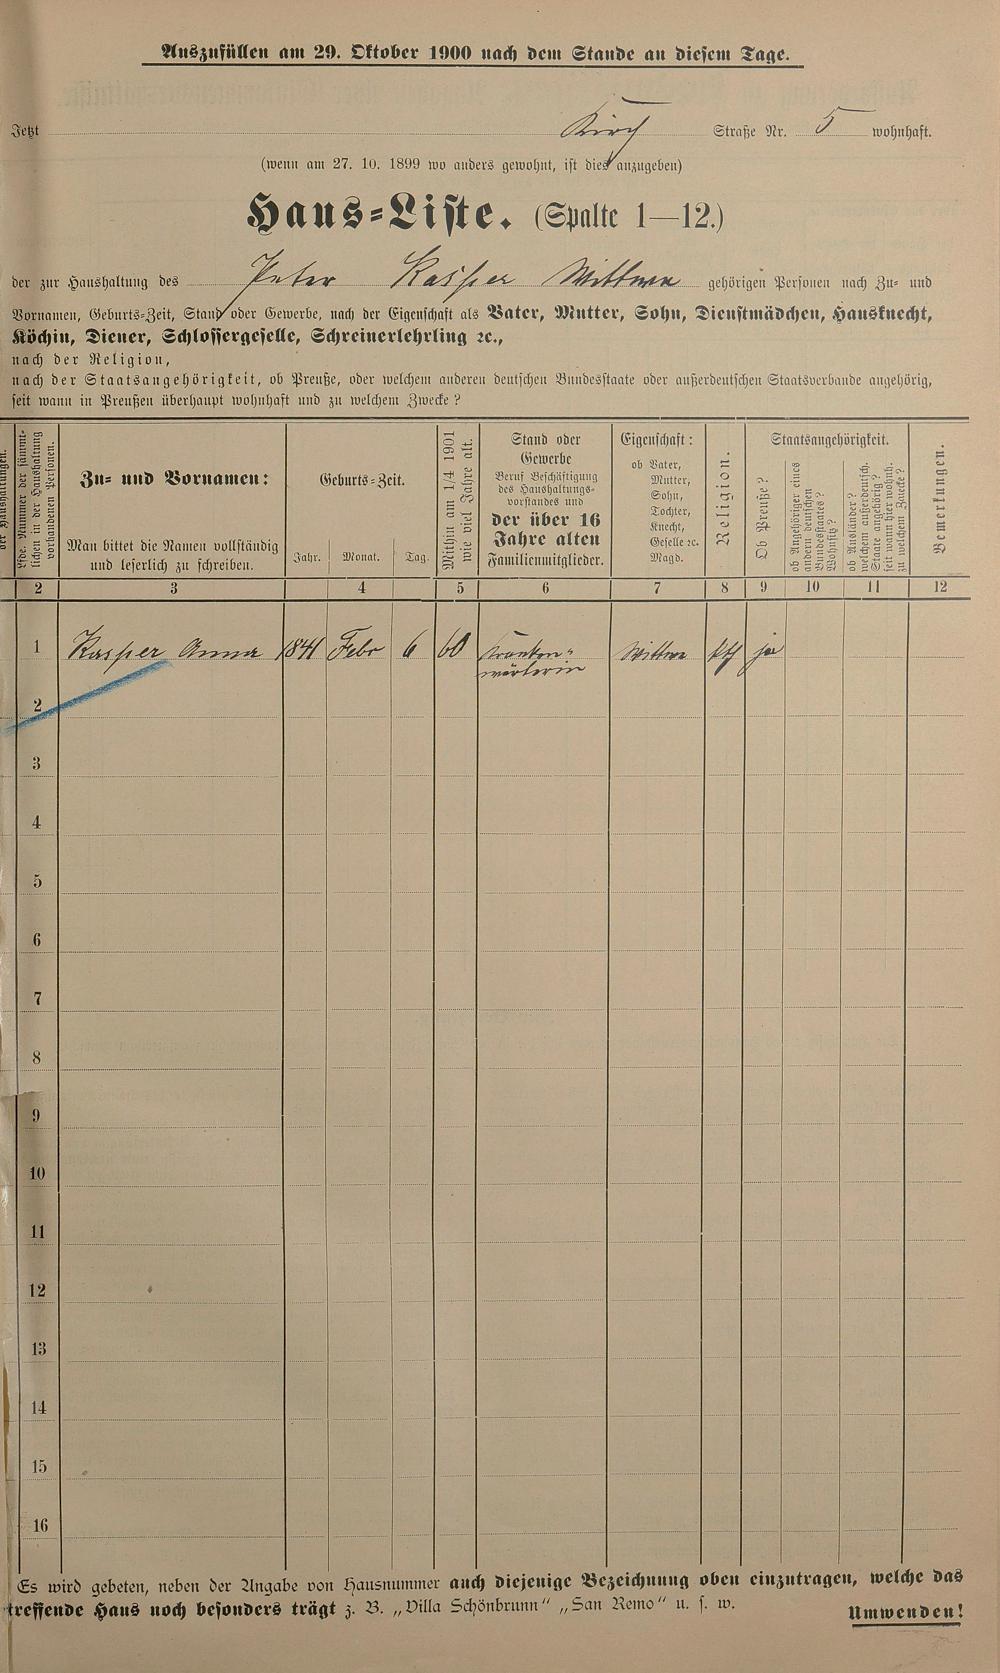 Auszufüllen am 29. Oktober 1900 nach dem Stande an diesem Tage.
Jetzt Kirch Straße Nr. 5 wohnhaft.
(wenn am 27. 10. 1899 wo anders gewohnt, ist dies anzugeben)
Haus-Liste. (Spalte 1—12.)
der zur Haushaltung des Peter Kasper Wittwe gehörigen Personen nach Zu- und
Vornamen, Geburts-Zeit, Stand oder Gewerbe, nach der Eigenschaft als Vater, Mutter, Sohn, Dienstmädchen, Hausknecht,
Köchin, Diener, Schlossergeselle, Schreinerlehrling ꝛc.,
nach der Religion,
nach der Staatsangehörigkeit, ob Preuße, oder welchem anderen deutschen Bundesstaate oder außerdeutschen Staatsverbande angehörig,
seit wann in Preußen überhaupt wohnhaft und zu welchem Zwecke?
der Haushaltungen.
Lfde. Nummer der sämmt-
lichen in der Haushaltung
vorhandenen Personen.
Zu- und Vornamen:
Man bittet die Namen vollständig
und leserlich zu schreiben.
Geburts-Zeit.
Jahr. Monat. Tag.
Mithin am 1/4 1901
wie viel Jahre alt.
Stand oder
Gewerbe
Beruf Beschäftigung
des Haushaltungs-
vorstandes und
der über 16
Jahre alten
Familienmitglieder.
Eigenschaft:
ob Vater,
Mutter,
Sohn,
Tochter,
Knecht,
Geselle ꝛc.
Magd.
Religion.
Staatsangehörigkeit.
Ob Preuße?
ob Angehöriger eines
andern deutschen
Bundesstaates?
Wohnsitz?
ob Ausländer?
welchem außerdeutsch.
Staate angehörig?
seit wann hier wohnh.
zu welchem Zwecke?
Bemerkungen.
2 3 4 5 6 7 8 9 10 11 12
1 Kasper Anna 1841 Febr 6 60 Kranken- Wittwe kth ja
wärterin
2
3
4
5
6
7
8
9
10
11
12
13
14
15
16
Es wird gebeten, neben der Angabe von Hausnummer auch diejenige Bezeichnung oben einzutragen, welche das
treffende Haus noch besonders trägt z. B. „Villa Schönbrunn“ „San Remo“ u. s. w.
Umwenden!